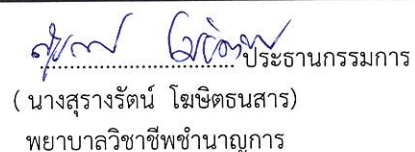 ........................ประธานกรรมการ
( นางสุรางรัตน์ โฆษิตธนสาร)
พยาบาลวิชาชีพชำนาญการ